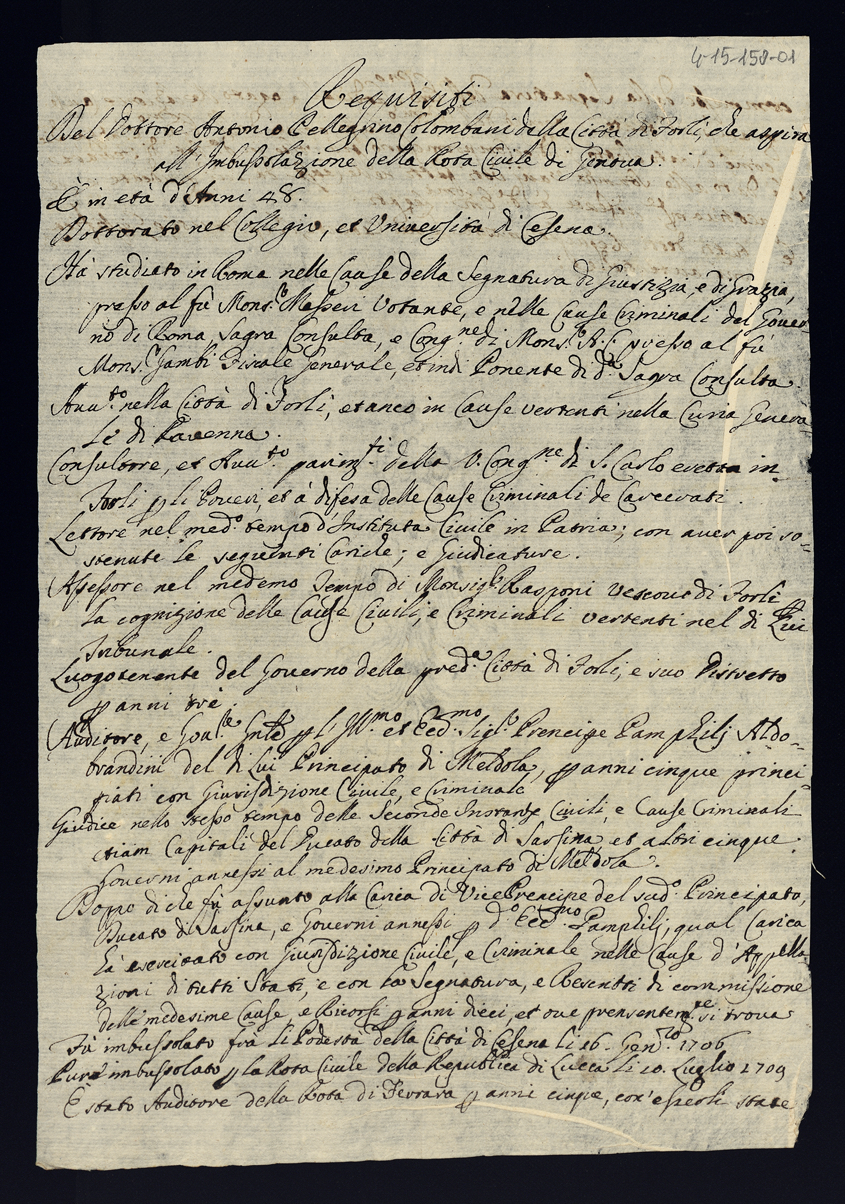 4-15-158-01
Requisiti
Del Dottore Antonio Pellegrino Colombani della Città di Forlì, che aspira
all'Imbussolazione della Rota Civile di Genova.
È in età d'Anni 48.
Dottorato nel Collegio, et Università di Cesena.
Hà studiato in Roma nelle Cause della Segnatura di Giustizia, e di Grazia,
presso al fù Mons.r Masseri Votante, e nelle Cause Criminali del Gover-
no di Roma, Sagra Consulta, e Cong.ne di Mons.r A. C. presso al fù
Mons.r Zambi Fiscale Generale, et indi Ponente di d.a Sagra Consulta.
Avu.to nella Città di Forlì, et anco in Cause vertenti nella Curia Genera-
le di Ravenna.
Consultore, et Avu.to parim.ti della V. Cong.ne di S. Carlo eretta in
Forlì p li Poveri, et à difesa delle Cause Criminali de Carcerati.
Lettore nel med.o tempo d'Instituta Civile in Patria; con aver poi so-
stenute le seguenti Cariche; e Giudicature.
Assessore nel medemo Tempo di Monsig.r Rasponi Vescovo di Forlì
p la cognizione delle Cause Civili, e Criminali vertenti nel di Lui
Tribunale.
Luogotenente del Governo della pred.a Città di Forlì, e suo Distretto
p anni trè.
Auditore, e Gov.re Gnle p l'Ill.mo et Ecc.mo Sig.r Prencipe Pamphilj Aldo-
brandini del di Lui Principato di Meldola, p anni cinque princi-
piati con Giurisdizione Civile, e Criminale
Giudice nello stesso tempo delle Seconde Instanze Civili, e Cause Criminali
etiam Capitali del Ducato della Città di Sarsina, et altri cinque
Governi annessi al medesimo Principato di Meldola.
Doppo di che fù assunto alla Carica di Vice Prencipe del sud.o Principato,
Ducato di Sarsina, e Governi annessi p d.o Ecc.mo Pamphilj, qual Carica
hà esercitato con Giurisdizione Civile, e Criminale nelle Cause d'Appella-
zioni di tutti Stati, e con la Segnatura, e Rescritti di commissione
delle medesime Cause, e Ricorsi p anni dieci, et ove prensentem.te si trova
Fù imbussolato frà li Podestà della Città di Cesena li 16. Gen.ro 1706
Pure imbussolato p la Rota Civile della Republica di Lucca li 10. Luglio 1709
È stato Auditore della Rota di Ferrara p anni cinque, con'essersli state